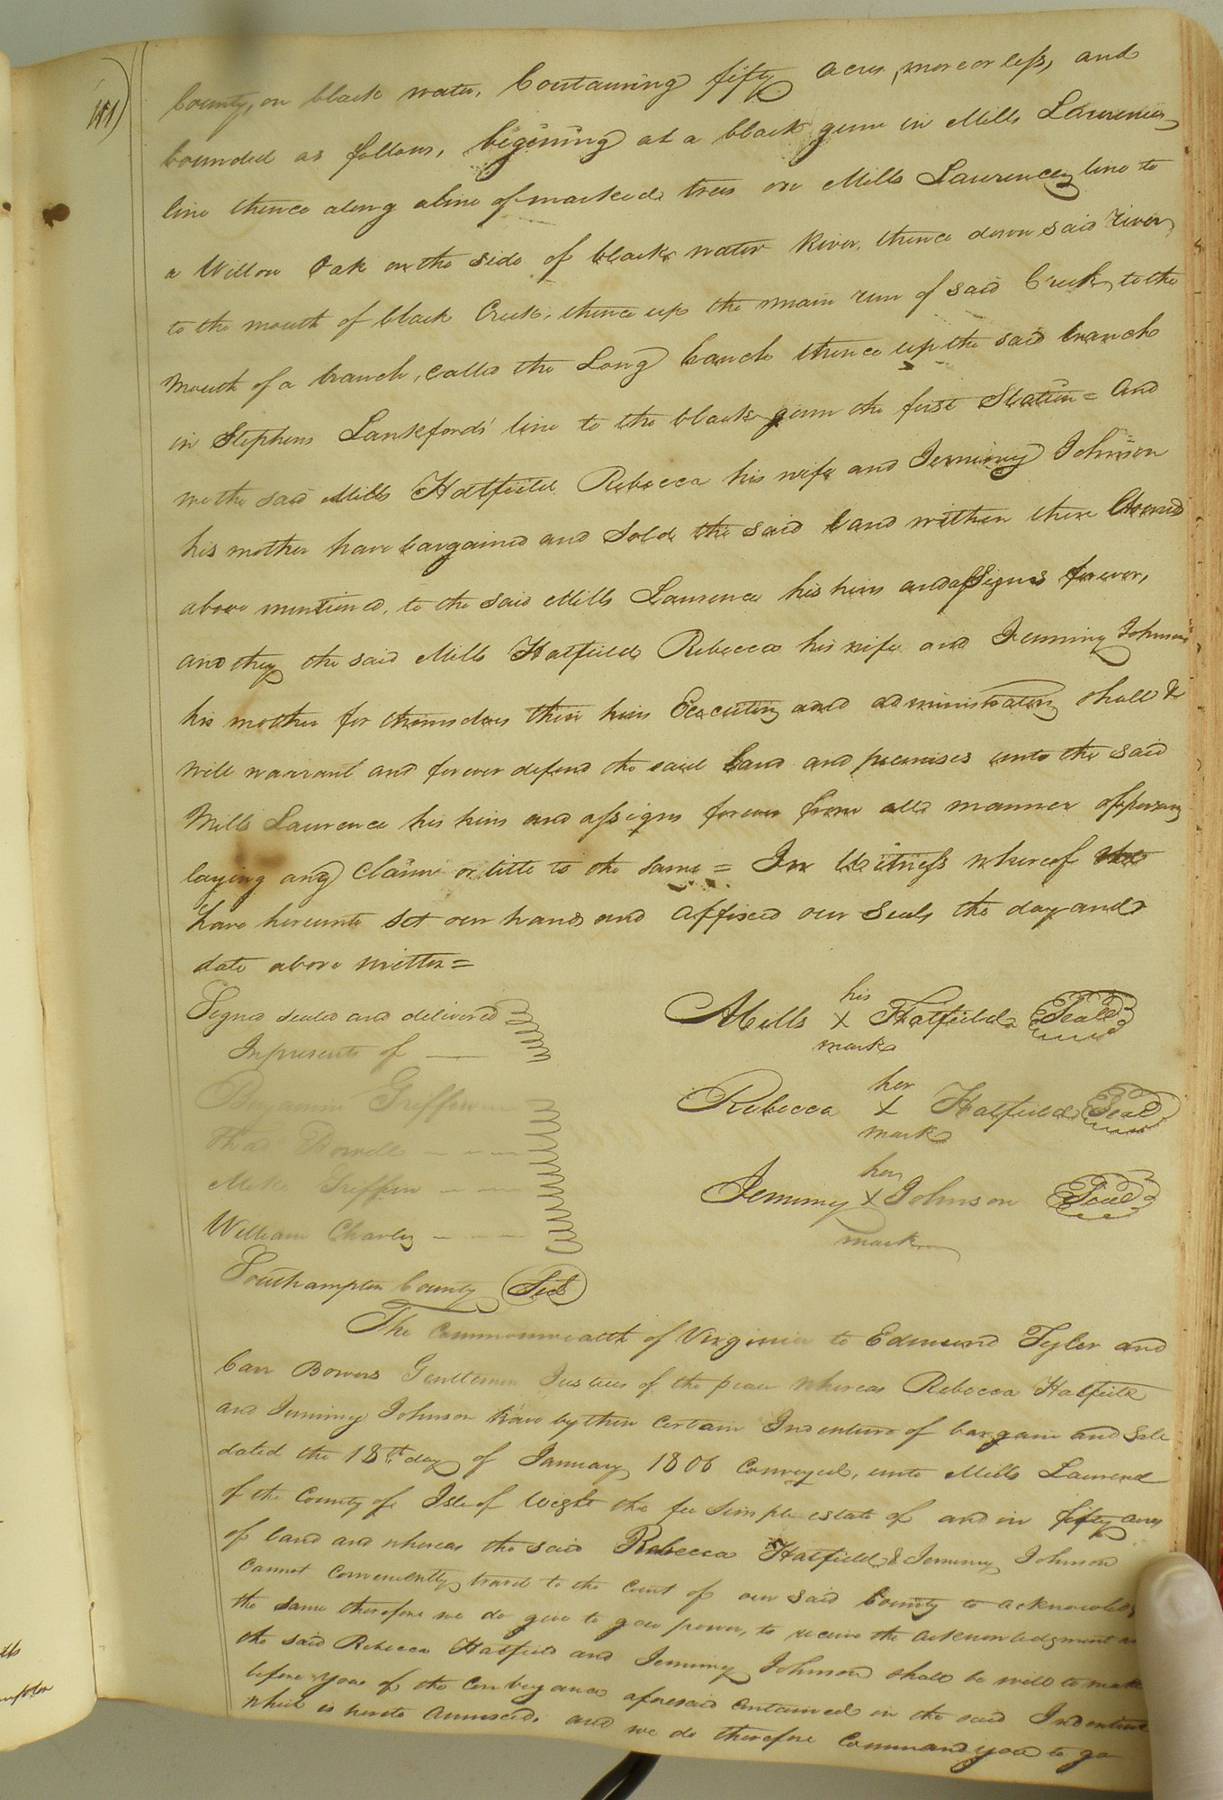 151)
County, on black water, Containing fifty acres, more or less, and
bounded as follows, begining at a black gum in Mills Lawrences
line thence along a line of marked trees on Mills Lawrences line to
a Willow Oak on the side of black water River, thence down said river
to the mouth of black Creek, thence up the main run of said Creek, to the
Mouth of a branch, called the Long branch thence up the said branch
in Stephens Lankfords' line to the black gum the first Station = and
we the said Mills Hatfield Rebecca his wife and Jemimy Johnson
his mother have bargained and Sold the said land within these bounds
above mentioned, to the said Mills Lawrence his heirs and assigns forever,
and they the said Mills Hatfield Rebecca his wife and Jemimy Johnson
his mother for themselves their heirs Executors and administrators shall &
will warrant and forever defend the said land and premises unto the said
Mills Lawrence his heirs and assigns forever from all manner of persons
laying any Claim or title to the same = In Witness whereof we
have hereunto set our hands and affixed our Seals the day and
date above written =
Signed sealed and delivered
In presents of
Benjamin Griffin
Thos
Griffin
William Charles
his
Mills X Hatfield Seal
mark
her
Rebecca X Hatfield Seal
mark
her
Jemimy X Johnson Seal
mark
Southampton County Sct
The Commonwealth of Virginia to Edmund Tyler and
Carr Bowers Gentlemen Justices of the peace whereas Rebecca Hatfield
and Jemimy Johnson have by their certain Indenture of bargain and Sale
dated the 18th day of January 1806 conveyed, unto Mills Lawrence
of the County of Isle of Wight the fee simple estate of and in fifty acres
of land and whereas the said Rebecca Hatfield & Jemimy Johnson
Cannot conveniently travel to the Court of our said County to acknowledge
the same therefore we do give to you power, to receive the acknowledgment
the said Rebecca Hatfield and Jemimy Johnson shall be will to make
before you of the conveyance aforesaid contained in the said Indenture
which is hereto annexed, and we do therefore Command you to go